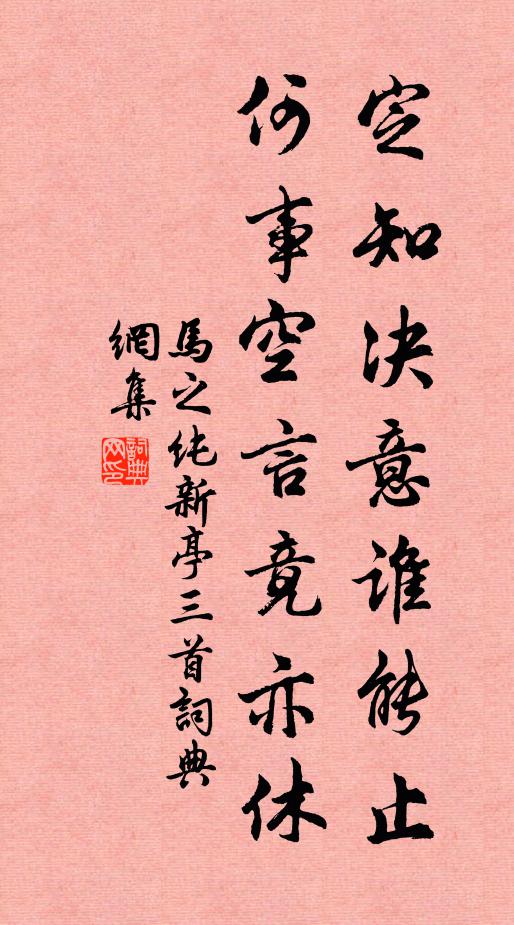 定知决意誰能止
何事空言竟亦休
馬之純新亭三首詞典
網集
詞典
网印